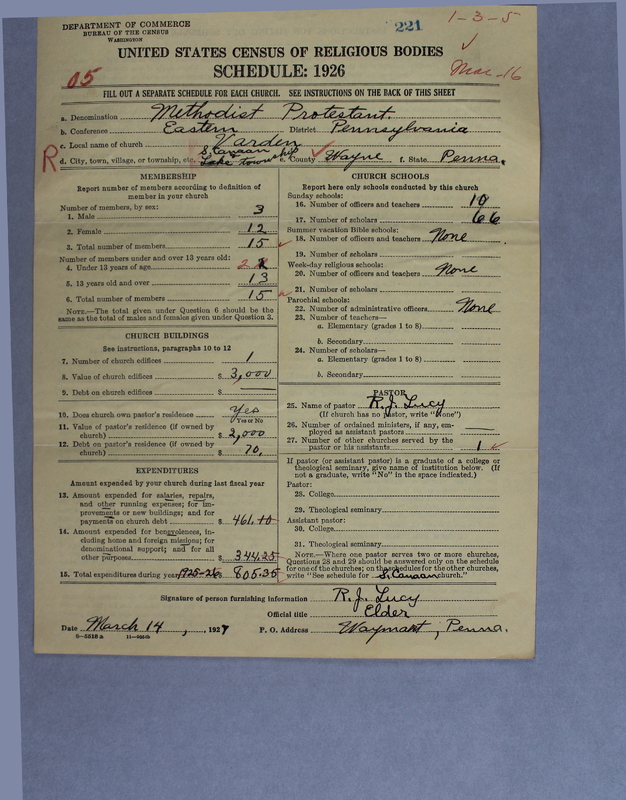 DEPARTMENT OF COMMERCE
BUREAU OF THE CENSUS
WASHINGTON
221
1-3-5
UNITED STATES CENSUS OF RELIGIOUS BODIES
SCHEDULE: 1926
05
Mar-16
FILL OUT A SEPARATE SCHEDULE FOR EACH CHURCH. SEE INSTRUCTIONS ON THE BACK OF THIS SHEET
a. Denomination Methodist Protestant.
b. Conference Eastern District Pennsylvania
c. Local name of church Varden
S. Canaan
R d. City, town, village, or township, etc. Lake township e. County Wayne f. State Penna.
MEMBERSHIP
Report number of members according to definition of
member in your church
Number of members, by sex:
1. Male 3
2. Female 12
3. Total number of members 15
Number of members under and over 13 years old:
4. Under 13 years of age 2
5. 13 years old and over 13
6. Total number of members 15
NOTE.—The total given under Question 6 should be the
same as the total of males and females given under Question 3.
CHURCH BUILDINGS
See instructions, paragraphs 10 to 12
7. Number of church edifices 1
8. Value of church edifices $ 3,000
9. Debt on church edifices $ —
10. Does church own pastor's residence Yes
Yes or No
11. Value of pastor's residence (if owned by
church) $ 2,000
12. Debt on pastor's residence (if owned by
church) $ 70,
EXPENDITURES
Amount expended by your church during last fiscal year
13. Amount expended for salaries, repairs,
and other running expenses; for im-
provements or new building; and for
payments on church debt $ 461.10
14. Amount expended for benevolences, in-
cluding home and foreign missions; for
denominational support; and for all
other purposes $ 344.25
15. Total expenditures during year 1925-26 $ 805.35
CHURCH SCHOOLS
Report here only schools conducted by this church
Sunday schools:
16. Number of officers and teachers 10
17. Number of scholars 66
Summer vacation Bible schools:
18. Number of officers and teachers None
19. Number of scholars
Week-day religious schools:
20. Number of officers and teachers None
21. Number of scholars
Parochial schools:
22. Number of administrative officers None
23. Number of teachers—
a. Elementary (grades 1 to 8)
b. Secondary
24. Number of scholars—
a. Elementary (grades 1 to 8)
b. Secondary
PASTOR
25. Name of pastor R. J. Lucy
(If church has no pastor, write "None")
26. Number of ordained ministers, if any, em-
ployed as assistant pastors —
27. Number of other churches served by the
pastor or his assistants 1
If pastor (or assistant pastor) is a graduate of a college or
theological seminary, give name of institution below. (If
not a graduate, write "No" in the space indicated.)
Pastor:
28. College
29. Theological seminary
Assistant pastor:
30. College
31. Theological seminary
NOTE.—Where one pastor serves two or more churches,
Questions 28 and 29 should be answered only on the schedule
for one of the churches; on the schedules for the other churches,
write "See schedule for S. Canaan church."
Signature of person furnishing information R. J. Lucy
Official title Elder
Date March 14, 1927 P. O. Address Waymart, Penna.